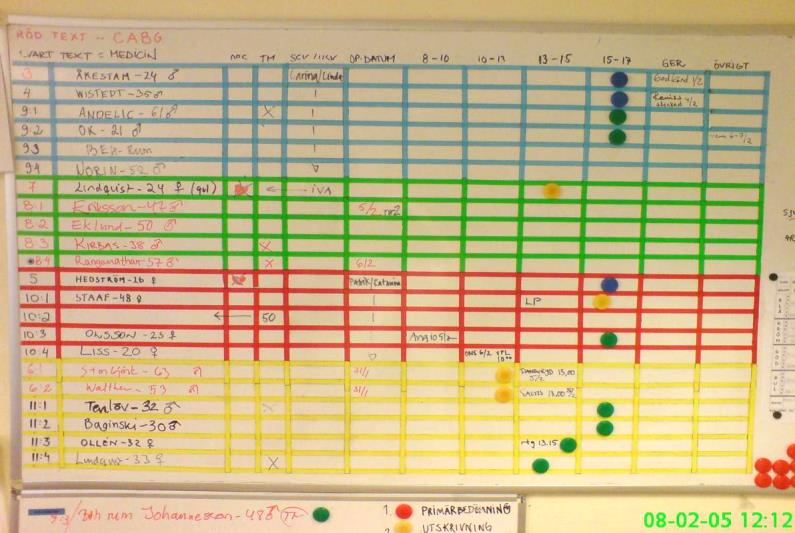 RÖD TEXT -- CABG
SVART TEXT = MEDICIN TM OP. DATUM 8-10 10-13 13-15 15-17 GER ÖVRIGT
3 ÅKESTAM-24 ♂ Carina/Linda Godkänd 1/2
4 WISTEDT-35 ♂
9:1 ANDELIC-61 ♂ X
9:2 OK-21 ♂
9:3
9:4 NORIN-52 ♂
7 Lindquist-24 ♀ ← IVA
8:1 Eriksson-47 ♂ 5/2
8:2 Eklund-50 ♂
8:3 KIRBAS-38 ♂ X
8:4 Ranganathan-57 ♂ X 6/2
5 HEDSTRÖM-26 ♀ Patrik/Catarina
10:1 STAAF-48 ♀ LP
10:2 ← 50
10:3 OLSSON-25 ♀
10:4 LISS-20 ♀ ONS 6/2
6:1 63 ♂ 31/1 13,00
6:2 Walther-53 ♂ 31/1 13.00
11:1 Tenlöv-32 ♂ X
11:2 Baginski-30 ♂
11:3 OLLÉN-32 ♀ rtg 13.15
11:4 Lindqvist-33 ♀ X
9:3/ rum Johannesson-48 ♂ 1. PRIMÄRBEDÖMNING
2 UTSKRIVNING
08-02-05 12:12